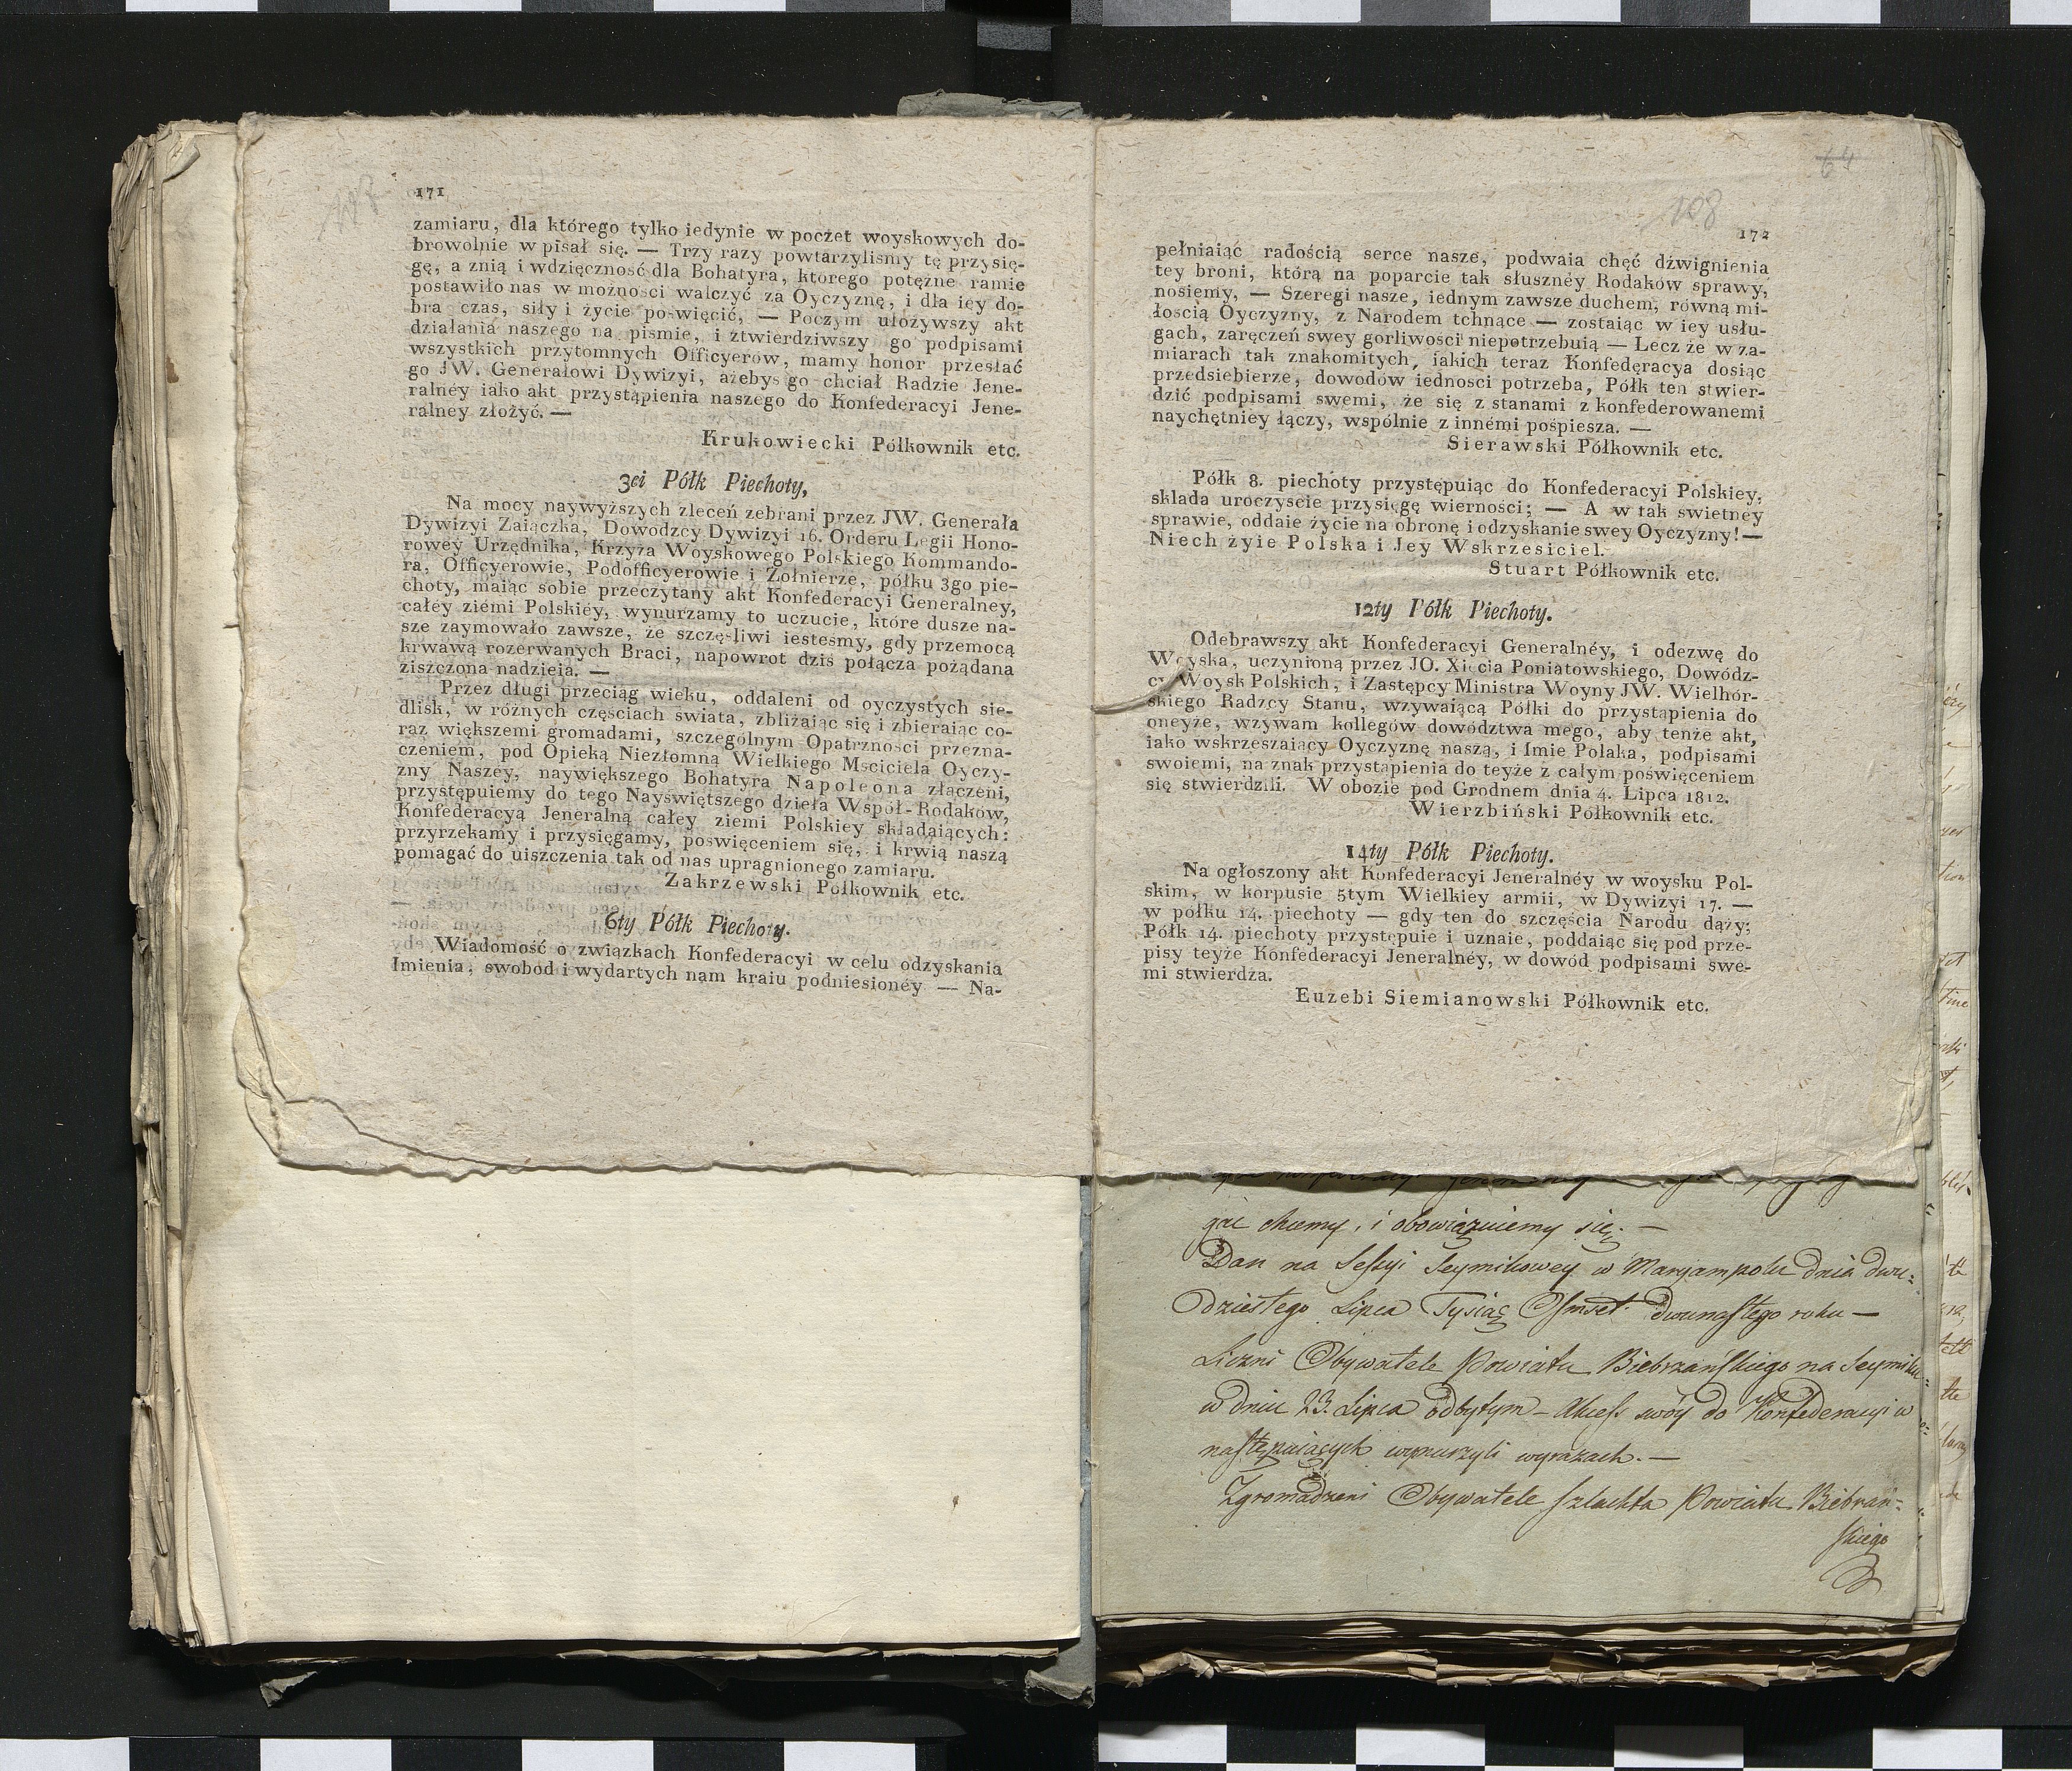 171
zamiaru, dla którego tylko iedynie w poczet woyskowych do-
browolnie wpisał się. — Trzy razy powtarzylismy tę przysię-
gę, a znią i wdzięczność dla Bohatyra, ktorego potężne ramie
postawiło nas w możności walczyć za Oyczyznę, i dla iey do-
bra czas, siły i życie poświęcić, — Poczym ułożywszy akt
działania naszego na pismie, i ztwierdziwszy go podpisami
wszystkich przytomnych Officyerów, mamy honor przesłać
go JW. Generałowi Dywizyi, ażebys go chciał Radzie Jene-
ralney iako akt przystąpienia naszego do Konfederacyi Jene-
ralney złożyć. —
Krukowiecki Półkownik etc.
3ci Półk Piechoty,
Na mocy naywyższych zleceń zebrani przez JW. Generała
Dywizyi Zaiączka, Dowodzcy Dywizyi 16. Orderu Legii Hono-
rowey Urzędnika, Krzyża Woyskowego Polskiego Kommando-
ra, Officyerowie, Podofficyerowie i Żołnierze, półku 3go pie-
choty, maiąc sobie przeczytany akt Konfederacyi Generalney,
całey ziémi Polskiéy, wynurzamy to uczucie, które dusze na-
sze zaymowało zawsze, że szczęśliwi iestesmy, gdy przemocą
krwawą rozerwanych Braci, napowrot dzis połącza pożądana
ziszczona nadzieia. —
Przez długi przeciąg wieku, oddaleni od oyczystych sie-
dlisk, w różnych częściach świata, zbliżaiąc się i zbieraiąc co-
raz większemi gromadami, szczególnym Opatrzności przezna-
czeniem, pod Opieką Niezłomną Wielkiego Msciciela Oyczy-
zny Naszéy, naywiększego Bohatyra Napoleona złączeni,
przystępuiemy do tego Nayświętszego dzieła Współ-Rodaków,
Konfederacyą Jeneralną całey ziemi Polskiey składaiących:
przyrzekamy i przysięgamy, poswięceniem się, i krwią naszą
pomagać do uiszczenia tak od nas upragnionego zamiaru.
Zakrzewski Półkownik etc.
6ty Półk Piechoty.
Wiadomość o związkach Konfederacyi w celu odzyskania
Imienia, swobód i wydartych nam kraiu podniesionéy — Na-
64
108
172
pełniaiąć radością serce nasze, podwaia chęć dźwignienia
tey broni, którą na poparcie tak słusznéy Rodaków sprawy,
nosiemy, — Szeregi nasze, iednym zawsze duchem, równą mi-
łoscią Oyczyzny, z Narodem tchnące — zostaiąc w iey usłu-
gach, zaręczeń swey gorliwości niepotrzebuią — Lecz że w za-
miarach tak znakomitych, iakich teraz Konfederacya dosiąc
przedsiebierze, dowodów iednosci potrzeba, Półk ten stwier-
dzić podpisami swemi, że się z stanami z konfederowanemi
naychętniey łączy, wspólnie z innémi pośpiesza. —
Sierawski Półkownik etc.
Półk 8. piechoty przystępuiąc do Konfederacyi Polskiey,
składa uroczyscie przysięgę wierności; — A w tak swietney
sprawie, oddaie życie na obronę i odzyskanie swey Oyczyzny! —
Niech żyie Polska i Jey Wskrzesiciel.
Stuart Półkownik etc.
12ty Półk Piechoty.
Odebrawszy akt Konfederacyi Generalnéy, i odezwę do
Woyska, uczynioną przez JO. Xięcia Poniatowskiego, Dowódz-
cy Woysk Polskich, i Zastępcy Ministra Woyny JW. Wielhór-
skiego Radzcy Stanu, wzywaiącą Półki do przystąpienia do
oneyże, wzywam kollegów dowództwa mego, aby tenże akt,
iako wskrzeszaiący Oyczyznę naszą, i Imie Polaka, podpisami
swoiemi, na znak przystąpienia do teyże z całym poświęceniem
się stwierdzili. W obozie pod Grodnem dnia 4. Lipca 1812.
Wierzbiński Półkownik etc.
14ty Półk Piechoty.
Na ogłoszony akt Konfederacyi Jeneralnéy w woysku Pol-
skim, w korpusie 5tym Wielkiey armii, w Dywizyi 17. —
w półku 14. piechoty — gdy ten do szczęścia Narodu dąży;
Półk 14. piechoty przystępuie i uznaie, poddaiąc się pod prze-
pisy teyże Konfederacyi Jeneralnéy, w dowód podpisami swe-
mi stwierdza.
Euzebi Siemianowski Półkownik etc.
chcemy, i obowiązuiemy się. —
Dan na Sessyi Seymikowey w Maryampolu dnia dwu=
dziestego Lipca Tysiąc Osmset dwunastego roku —
Liczni Obywatele Powiatu Biebrzańskiego na Seymiku
w dniu 23. Lipca odbytym — Akcess swóy do Konfederacyi w
następuiących wynurzyli wyrazach. —
Zgromadzeni Obywatele szlachta Powiatu Biebrzań=
skiego